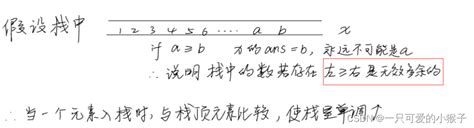 假设栈中 1 2 3 4 5 6 ···· a b x
if a≥b x的ans=b, 永远不可能是a
∴ 说明 栈中的数若存在 左≥右 是无效多余的
∴ 当一个元素入栈时,与栈顶元素比较,使栈呈单调↑
CSDN @一只可爱的小猴子